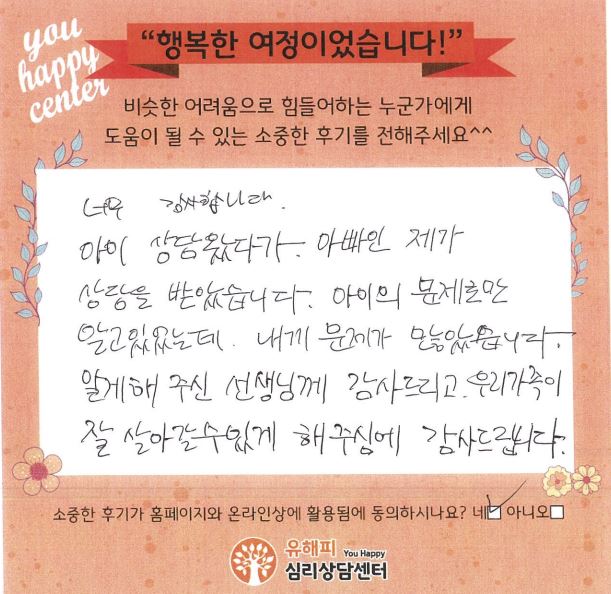 you
happy
center
“행복한 여정이었습니다!”
비슷한 어려움으로 힘들어하는 누군가에게
도움이 될 수 있는 소중한 후기를 전해주세요^^
너무 감사합니다.
아이 상담왔다가. 아빠인 제가
상담을 받았습니다. 아이의 문제로만
알고있었는데. 내게 문제가 많았습니다.
알게해 주신 선생님께 감사드리고. 우리가족이
잘 살아갈수있게 해주심에 감사드립니다.
소중한 후기가 홈페이지와 온라인상에 활용됨에 동의하시나요? 네☑ 아니오□
유해피 You Happy
심리상담센터